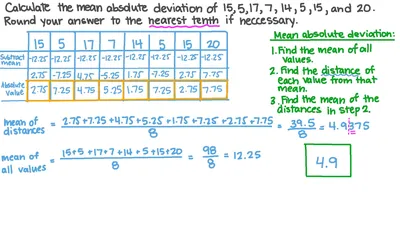 Calculate the mean absolute deviation of 15, 5, 17, 7, 14, 5, 15, and 20.
Round your answer to the nearest tenth if neccessary.
Mean absolute deviation:
1. Find the mean of all
values.
2. Find the distance of
each value from that
mean.
3. Find the mean of the
distances in step 2.
15 5 17 7 14 5 15 20
Subtract mean -12.25 -12.25 -12.25 -12.25 -12.25 -12.25 -12.25 -12.25
2.75 -7.25 4.75 -5.25 1.75 -7.25 2.75 7.75
Absolute Value 2.75 7.25 4.75 5.25 1.75 7.25 2.75 7.75
mean of distances = 2.75+7.25+4.75+5.25+1.75+7.25+2.75+7.75 / 8 = 39.5 / 8 = 4.9375
mean of all values = 15+5+17+7+14+5+15+20 / 8 = 98 / 8 = 12.25
4.9